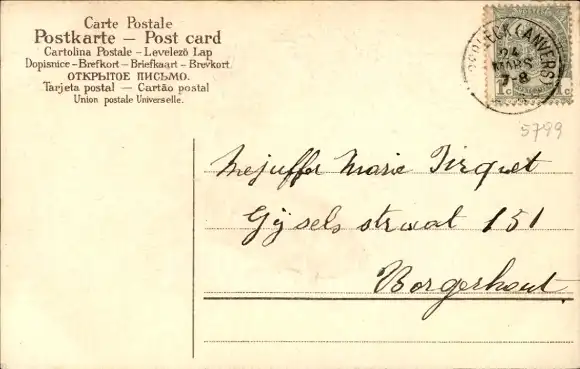 Carte Postale
Postkarte — Post card
Cartolina Postale - Levelező Lap
Dopisnice - Brefkort - Briefkaart - Brevkort.
ОТКРЫТОЕ ПИСЬМО.
Tarjeta postal — Cartão postal
Union postale Universelle.
(ANVERS)
24
MARS
7-8
1c 1c
5799
Mejuffr Marie Tirquet
Gijsels straat 151
Borgerhout